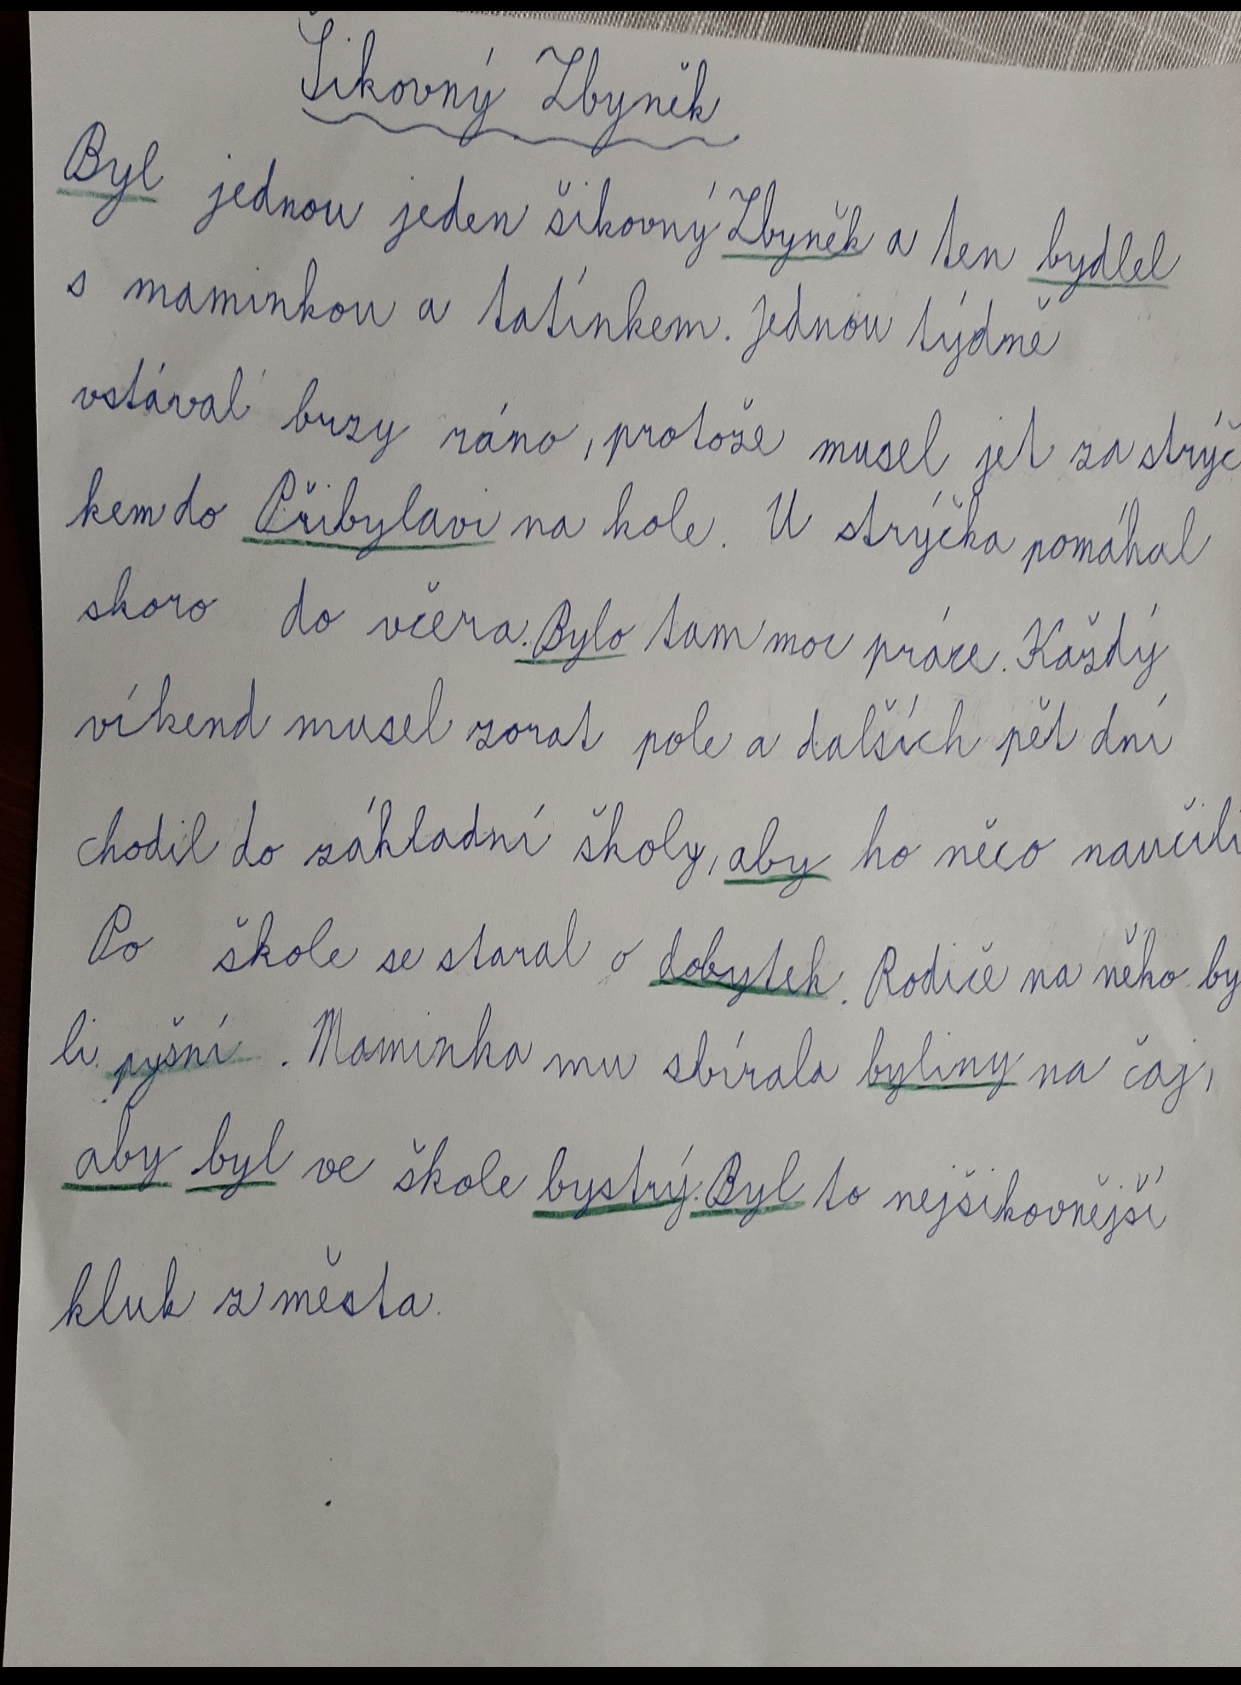 Šikovný Zbyněk
Byl jednou jeden šikovný Zbyněk a ten bydlel
s maminkou a tatínkem. Jednou týdně
vstával brzy ráno, protože musel jet za strýč
kem do Přibylavi na kole. U strýčka pomáhal
skoro do včera. Bylo tam moc práce. Každý
víkend musel zorat pole a dalších pět dní
chodil do záhladní školy, aby ho něco naučili
Po škole se staral o dobytek. Rodiče na něho by
li pyšní. Maminka mu sbírala byliny na čaj,
aby byl ve škole bystrý. Byl to nejšikovnější
kluk z města.